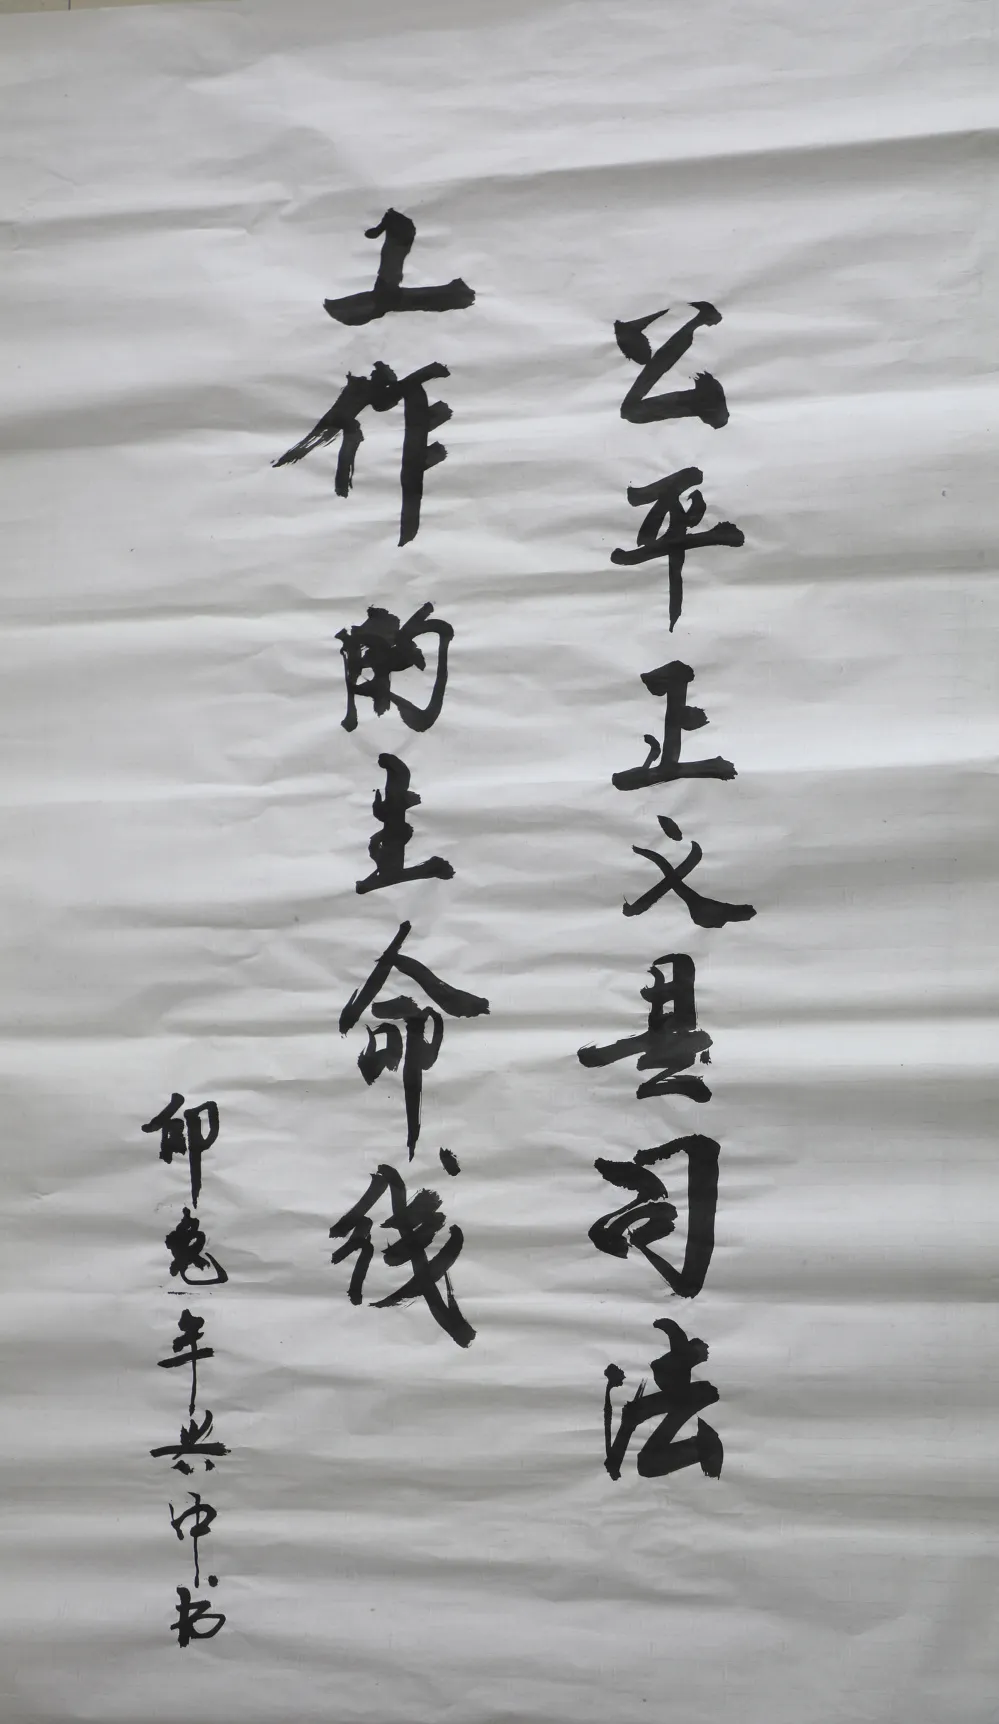 公平正义是司法
工作的生命线
卯兔年兴中书